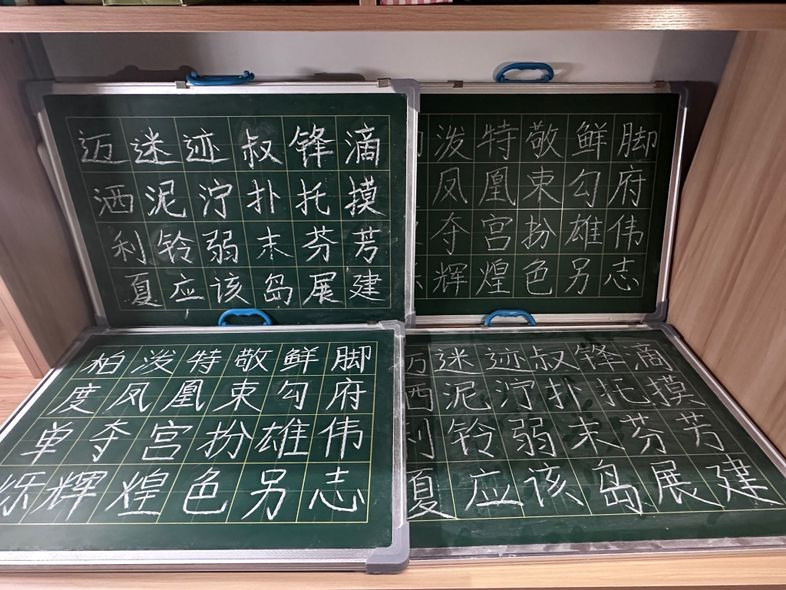 迈迷迹叔锋滴
洒泥泞扑托摸
利铃弱末芬芳
夏应该岛展建
泼特敬鲜脚
凤凰束勾府
夺宫扮雄伟
辉煌色另志
柏泼特敬鲜脚
度凤凰束勾府
单夺宫扮雄伟
烁辉煌色另志
迈迷迹叔锋滴
洒泥泞扑托摸
利铃弱未芬芳
夏应该岛展建